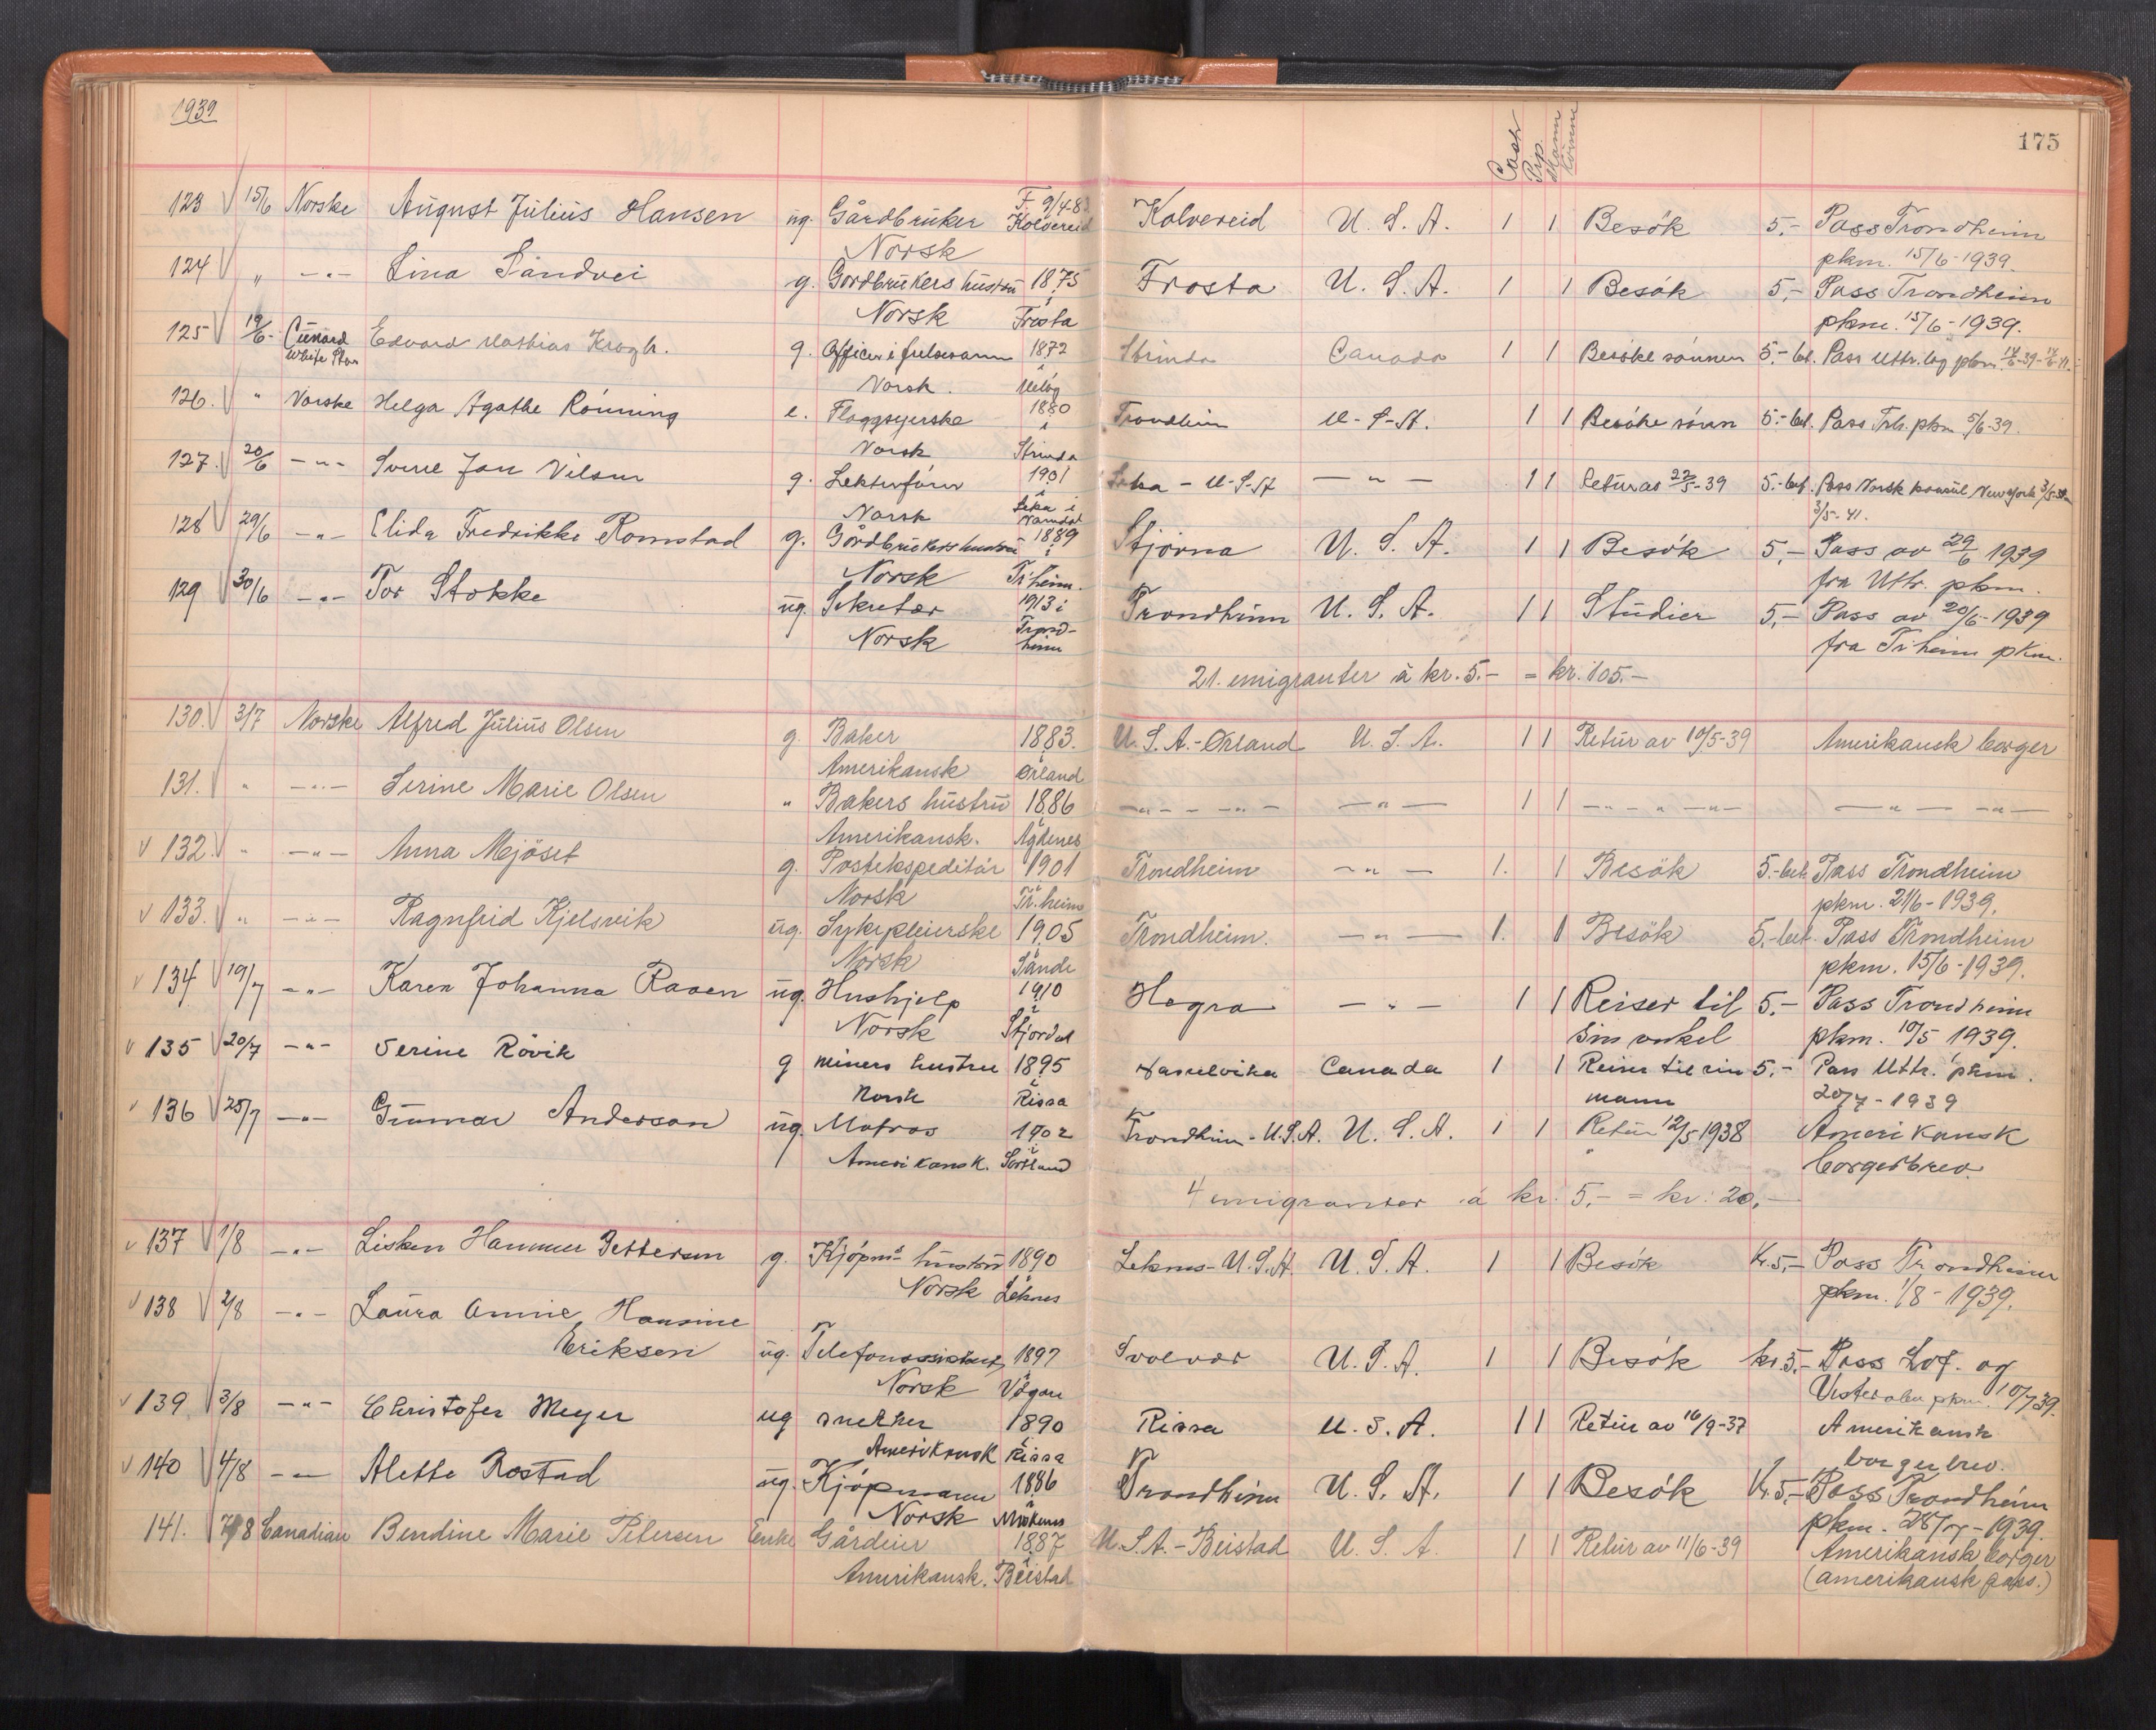 1939
175
Cash Prp. Mann Kvinne
123 15/6 Norske August Julius Hansen ug. Gårdbruker F. 9/4-8 Kolvereid Kolvereid U. S. A. 1 1 Besök 5,- Pass Trondheim
Norsk pkm. 15/6-1939.
124 " -"- Lina Sandvei g. Gordbrukers hustru 1875 Frosta U. S. A. 1 1 Besök 5,- Pass Trondheim
Norsk i Frosta pkm. 15/6-1939.
125 19/6- Cunard White Star Edvard Mathias Krogh. g. Officer i frelsesarm 1872 Strinda Canada 1 1 Besöke sönnen 5.- bet. Pass Uttr. log pkm
Norsk. i Meløy
126. " Norske Helga Agathe Rönning e. Flaggsyerske 1880 Trondheim U-S-A. 1 1 Besöke sönn 5.- bet. Pass Trh. pkm 5/6-39.
Norsk i Strinda
127. 20/6 -"- Sverre Jan Nilsen g. Lektürförer 1901 Leka - U-S-A -"- 1 1 Retur as 22/5-39 5.- bet. Pass Norsk konsul New York 3/5-39
Norsk i Leka i Namdal 3/5-41.
128 29/6 -"- Elida Fredrikke Romstad g. Gårdbrukers hustru 1889 Stjörna U. S. A. 1 1 Besök 5,- Pass av 29/6 1939
Norsk i Tr.heim. fra Uttr. pkm.
129 30/6 -"- Tor Stokke ug. Sekretær 1913 i Trondheim U. S. A. 1 1 Studier 5,- Pass av 20/6-1939
Norsk Trondheim fra Tr.heim pkm.
21. emigranter à kr. 5.- = kr. 105.-
130. 3/7 Norske Alfred Julius Olsen g. Baker 1883. U. S. A.-Ørland U. S. A. 1 1 Retur av 10/5-39 Amerikansk borger
Amerikansk Ørland
131. " -"- Serine Marie Olsen " Bakers hustru 1886 -"- -"- -"- 1 1 -"- -"- -"- -"-
Amerikansk. i Agdenes
132. " -"- Anna Mjöset g. Postekspeditör 1901 Trondheim -"- 1. 1 Besök 5.-bet. Pass Trondheim
Norsk i Tr.heim pkm. 21/6-1939.
133. " -"- Ragnfrid Kjelsvik ug. Sykepleierske 1905 Trondheim. -"- 1. 1 Besök 5.-bet. Pass Trondheim
Norsk i Sande pkm. 15/6-1939.
134 19/7 -"- Karen Johanna Raaen ug. Hushjelp 1910 Hegra -"- 1 1 Reiser til 5.- Pass Trondheim
Norsk i Stjørdal sin onkel pkm. 10/5 1939.
135 20/7 -"- Serine Rövik g miners hustru 1895 Hasselvika Canada 1 1 Reiser til sin 5.- Pass Uttr. pkm.
Norsk i Rissa mann 20/7-1939
136 25/7 -"- Gunnar Anderson ug. Matros 1902 Trondhim-U.S.A. U. S. A. 1 1 Retur 12/5 1938 Amerikansk
Amerikansk. i Sortland borgerbrev.
4 emigranter à kr. 5.- = kr. 20,-
137 1/8 -"- Lisken Hammer Pettersen g. Kjöpm.s hustru 1890 Leknes-U.S.A. U. S. A. 1 1 Besök Kr.5,- Pass Trondheim
Norsk i Leknes pkm. 1/8-1939.
138 2/8 -"- Laura Annie Hansine
Eriksen ug. Telefonassistent 1897 Svolvær U. S. A. 1 1 Besök kr.5.- Pass Lof. og
Norsk i Vågan Vesterålen pkm. 10/7 39.
139 3/8 -"- Christofer Meyer ug snekker 1890 Rissa U. S. A. 1 1 Retur av 16/9-37 Amerikansk
Amerikansk i Rissa borgerbrev.
140 4/8 -"- Alette Rostad ug. Kjöpmann 1886 Trondheim U. S. A. 1 1 Besök Kr.5,- Pass Trondheim
Norsk pkm. 28/7-1939.
141. 7/8 Canadian Bendine Marie Petersen Enke Gårdeier 1887 U.S.A.-Beistad U. S. A. 1 1 Retur av 11/6-39 Amerikansk borger
Amerikansk. i Beistad (amerikansk pass.)